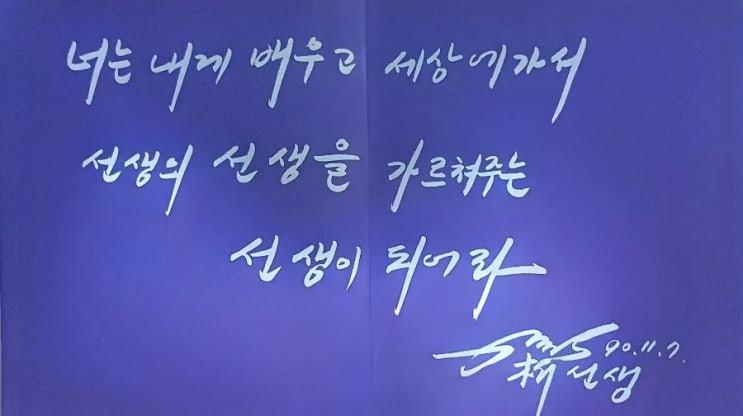 너는 내게 배우고 세상에가서
선생의 선생을 가르쳐주는
선생이 되어라
90.11.7.
선생